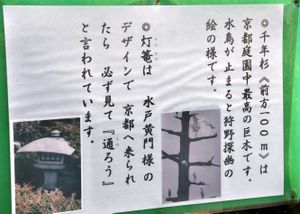 ◎千年杉《前方100m》は
京都庭園中最高の巨木です。
水鳥が止まると狩野探幽の
絵の様です。
◎灯篭は 水戸黄門様の
デザインで 京都へ来られ
たら 必ず見て『通ろう』
と言われています。